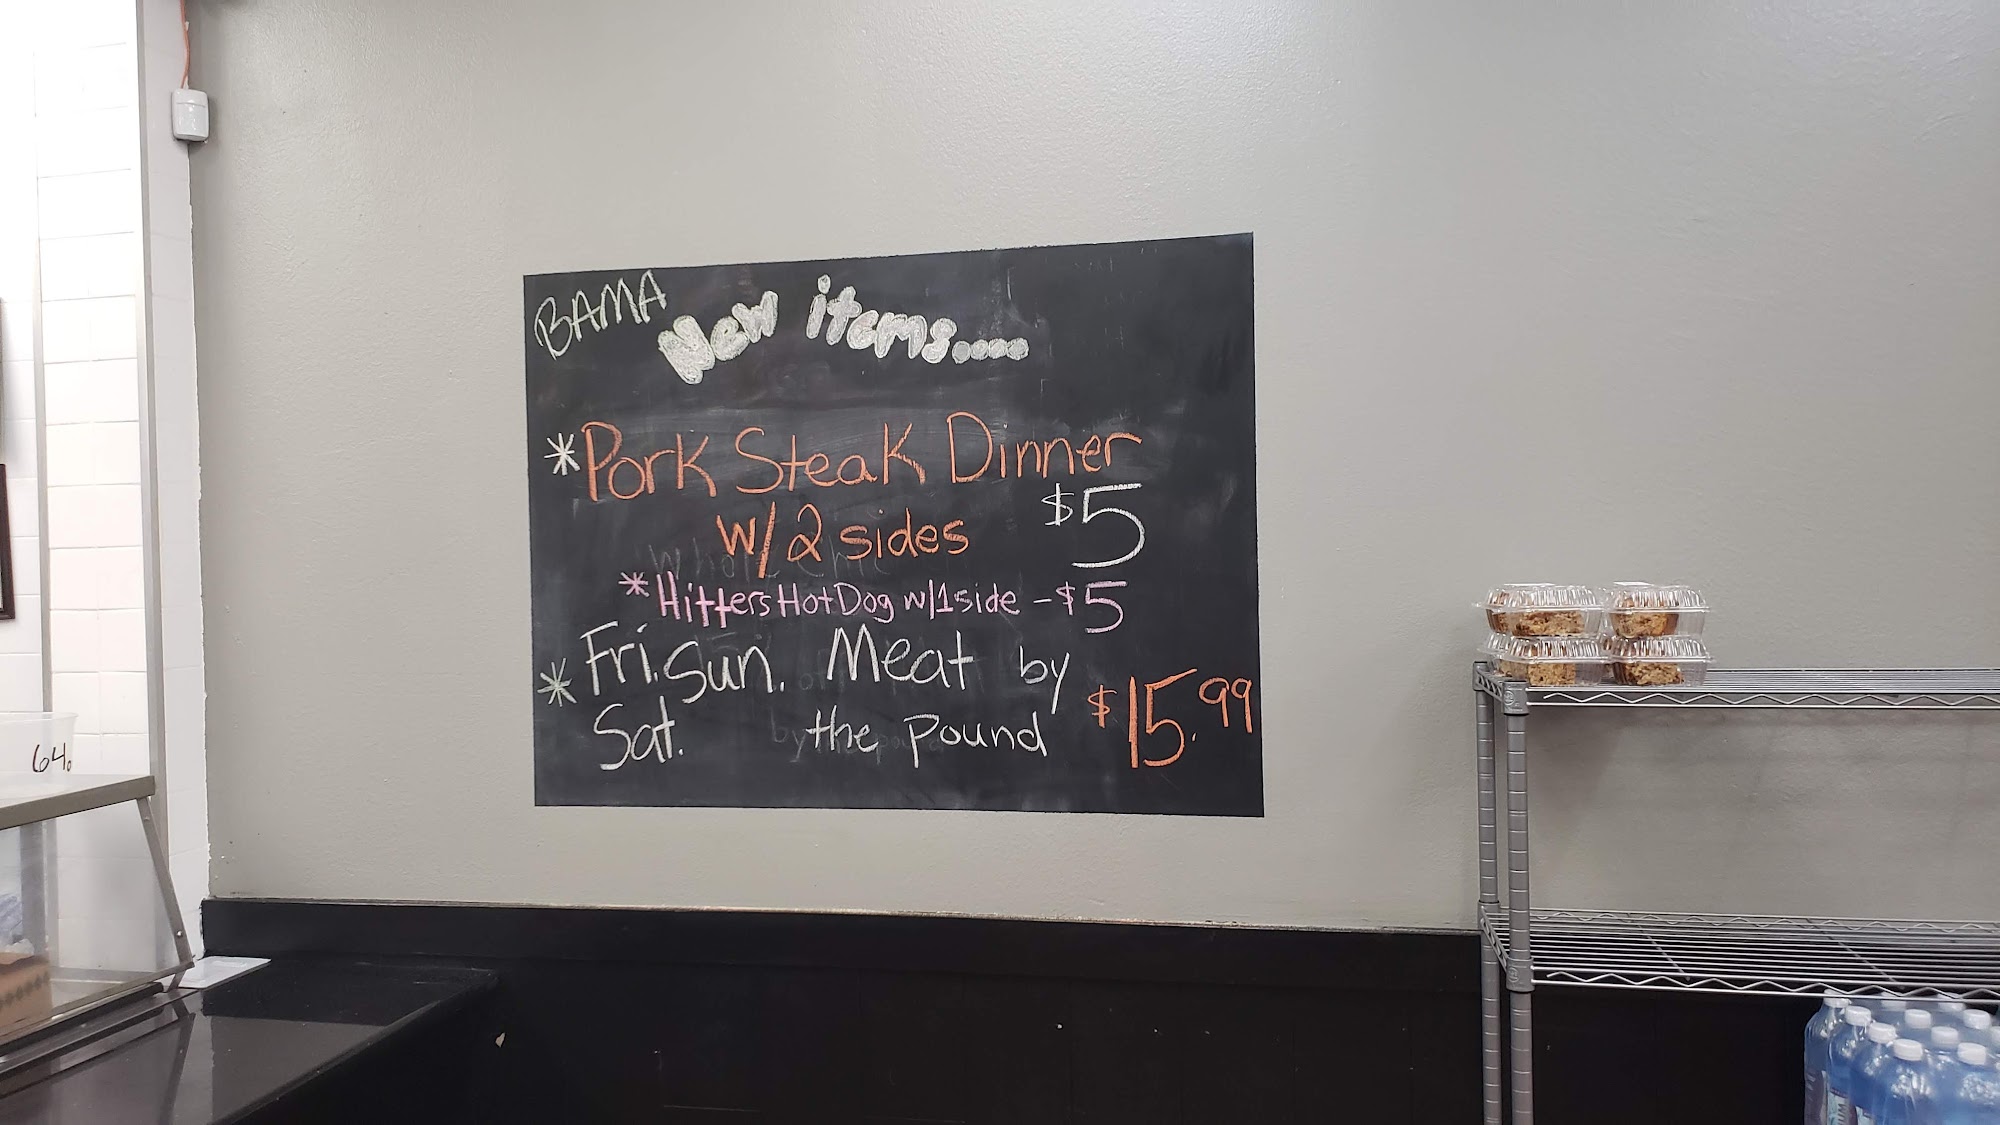 BAMA
New items....
*Pork Steak Dinner
w/2 sides $5
*Hitters Hot Dog w/1 side - $5
* Fri. Sun. Meat by
Sat. the pound $15.99
64.